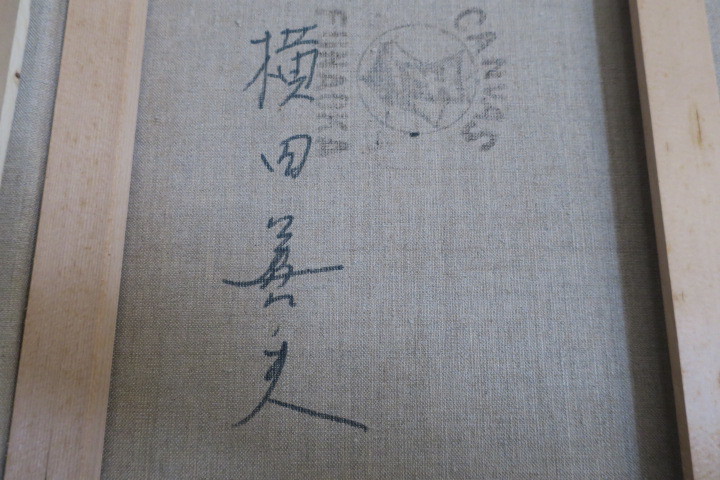 横田善夫
CANVAS
FUNAOKA